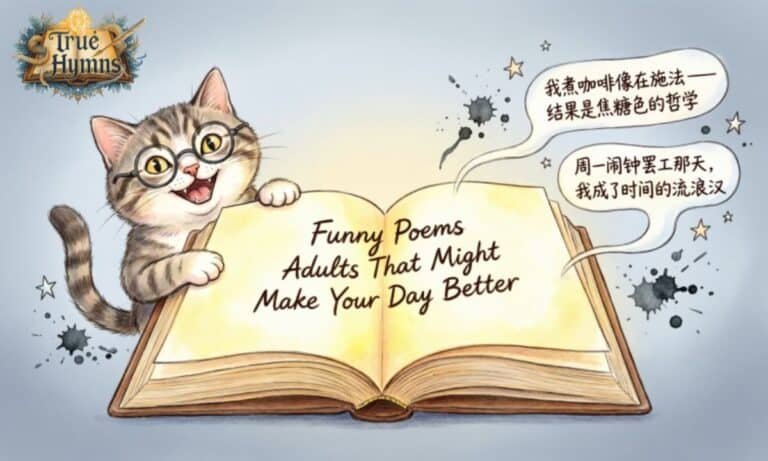 True
Hymns
我煮咖啡像在施法——
结果是焦糖色的哲学
周一闹钟罢工那天，
我成了时间的流浪汉
Funny Poems
Adults That Might
Make Your Day Better